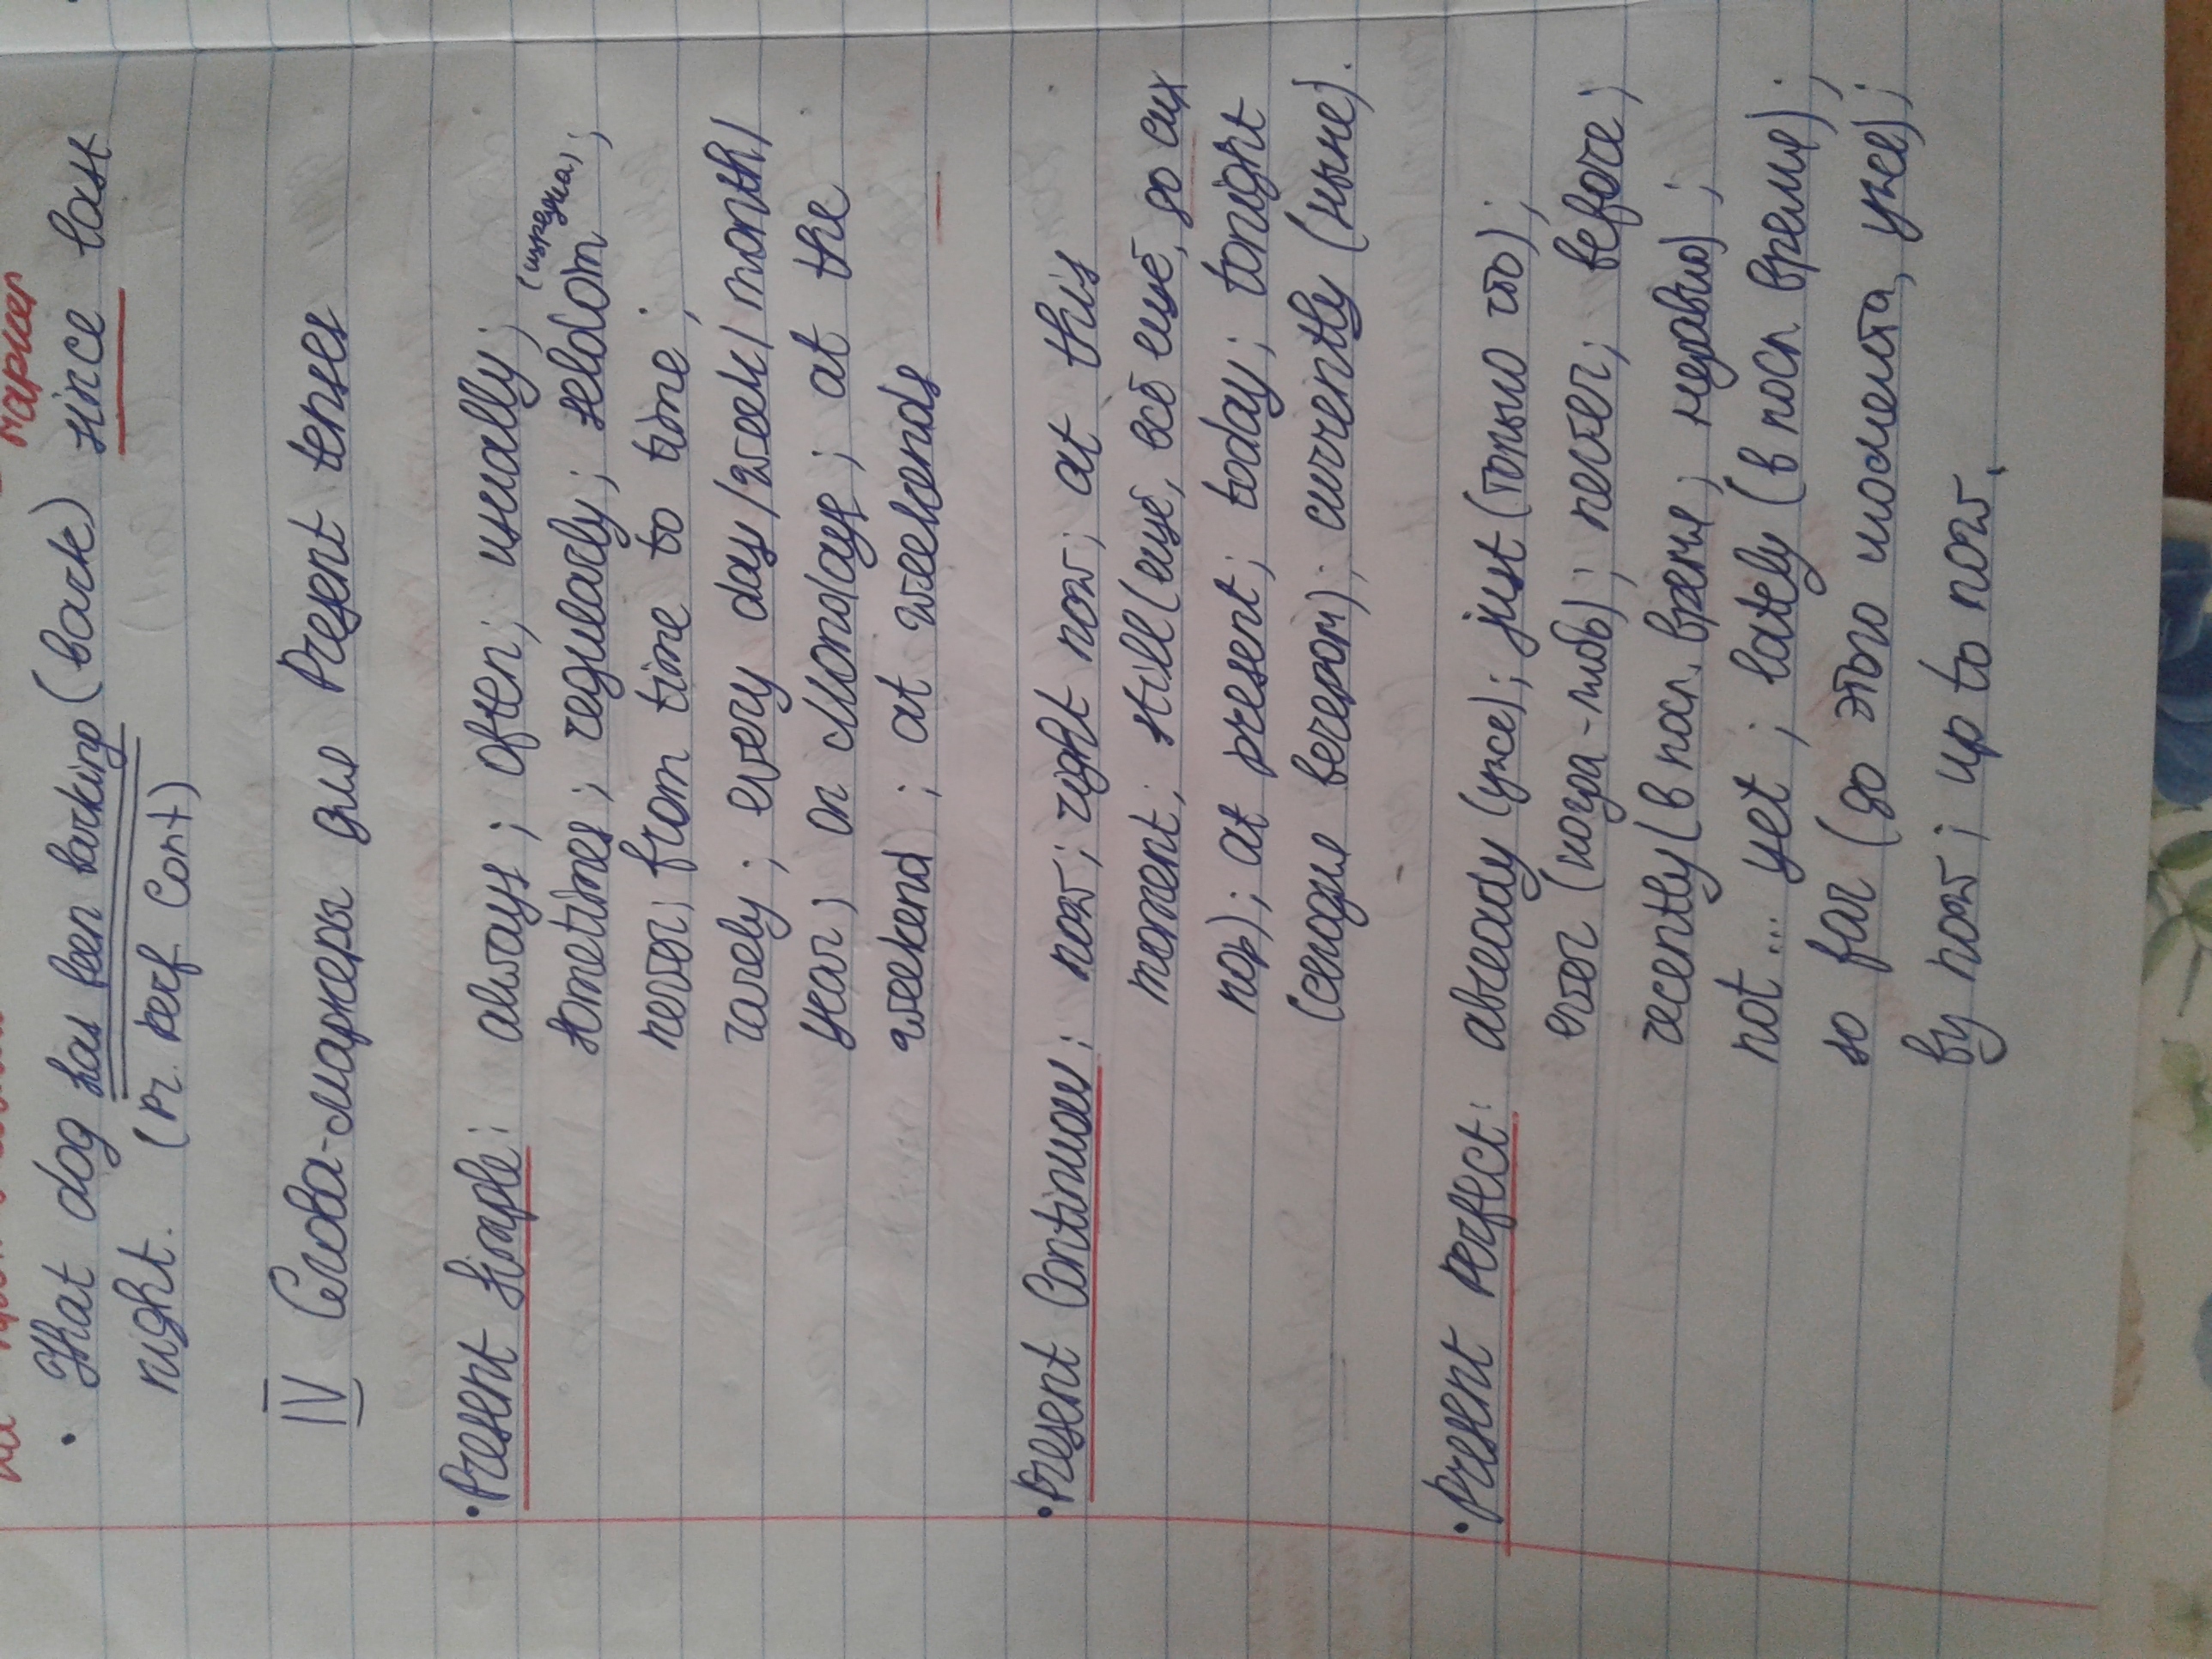 маркер
• That dog has been barking (bark) since last
night. (Pr. Perf Cont)
IV Слова-маркеры для Present tenses
• Present Simple: always; often; usually;
sometimes; regularly; seldom (изредка);
never; from time to time;
rarely; every day/week/month/
year; on Mondays; at the
weekend; at weekends
• Present Continuous: now; right now; at this
moment; still (ещё, всё ещё, до сих
пор); at present; today; tonight
(сегодня вечером); currently (ныне).
• Present Perfect: already (уже); just (только что);
ever (когда-либо); never; before;
recently (в посл. время, недавно);
not... yet; lately (в посл время);
so far (до этого момента, уже);
by now; up to now.